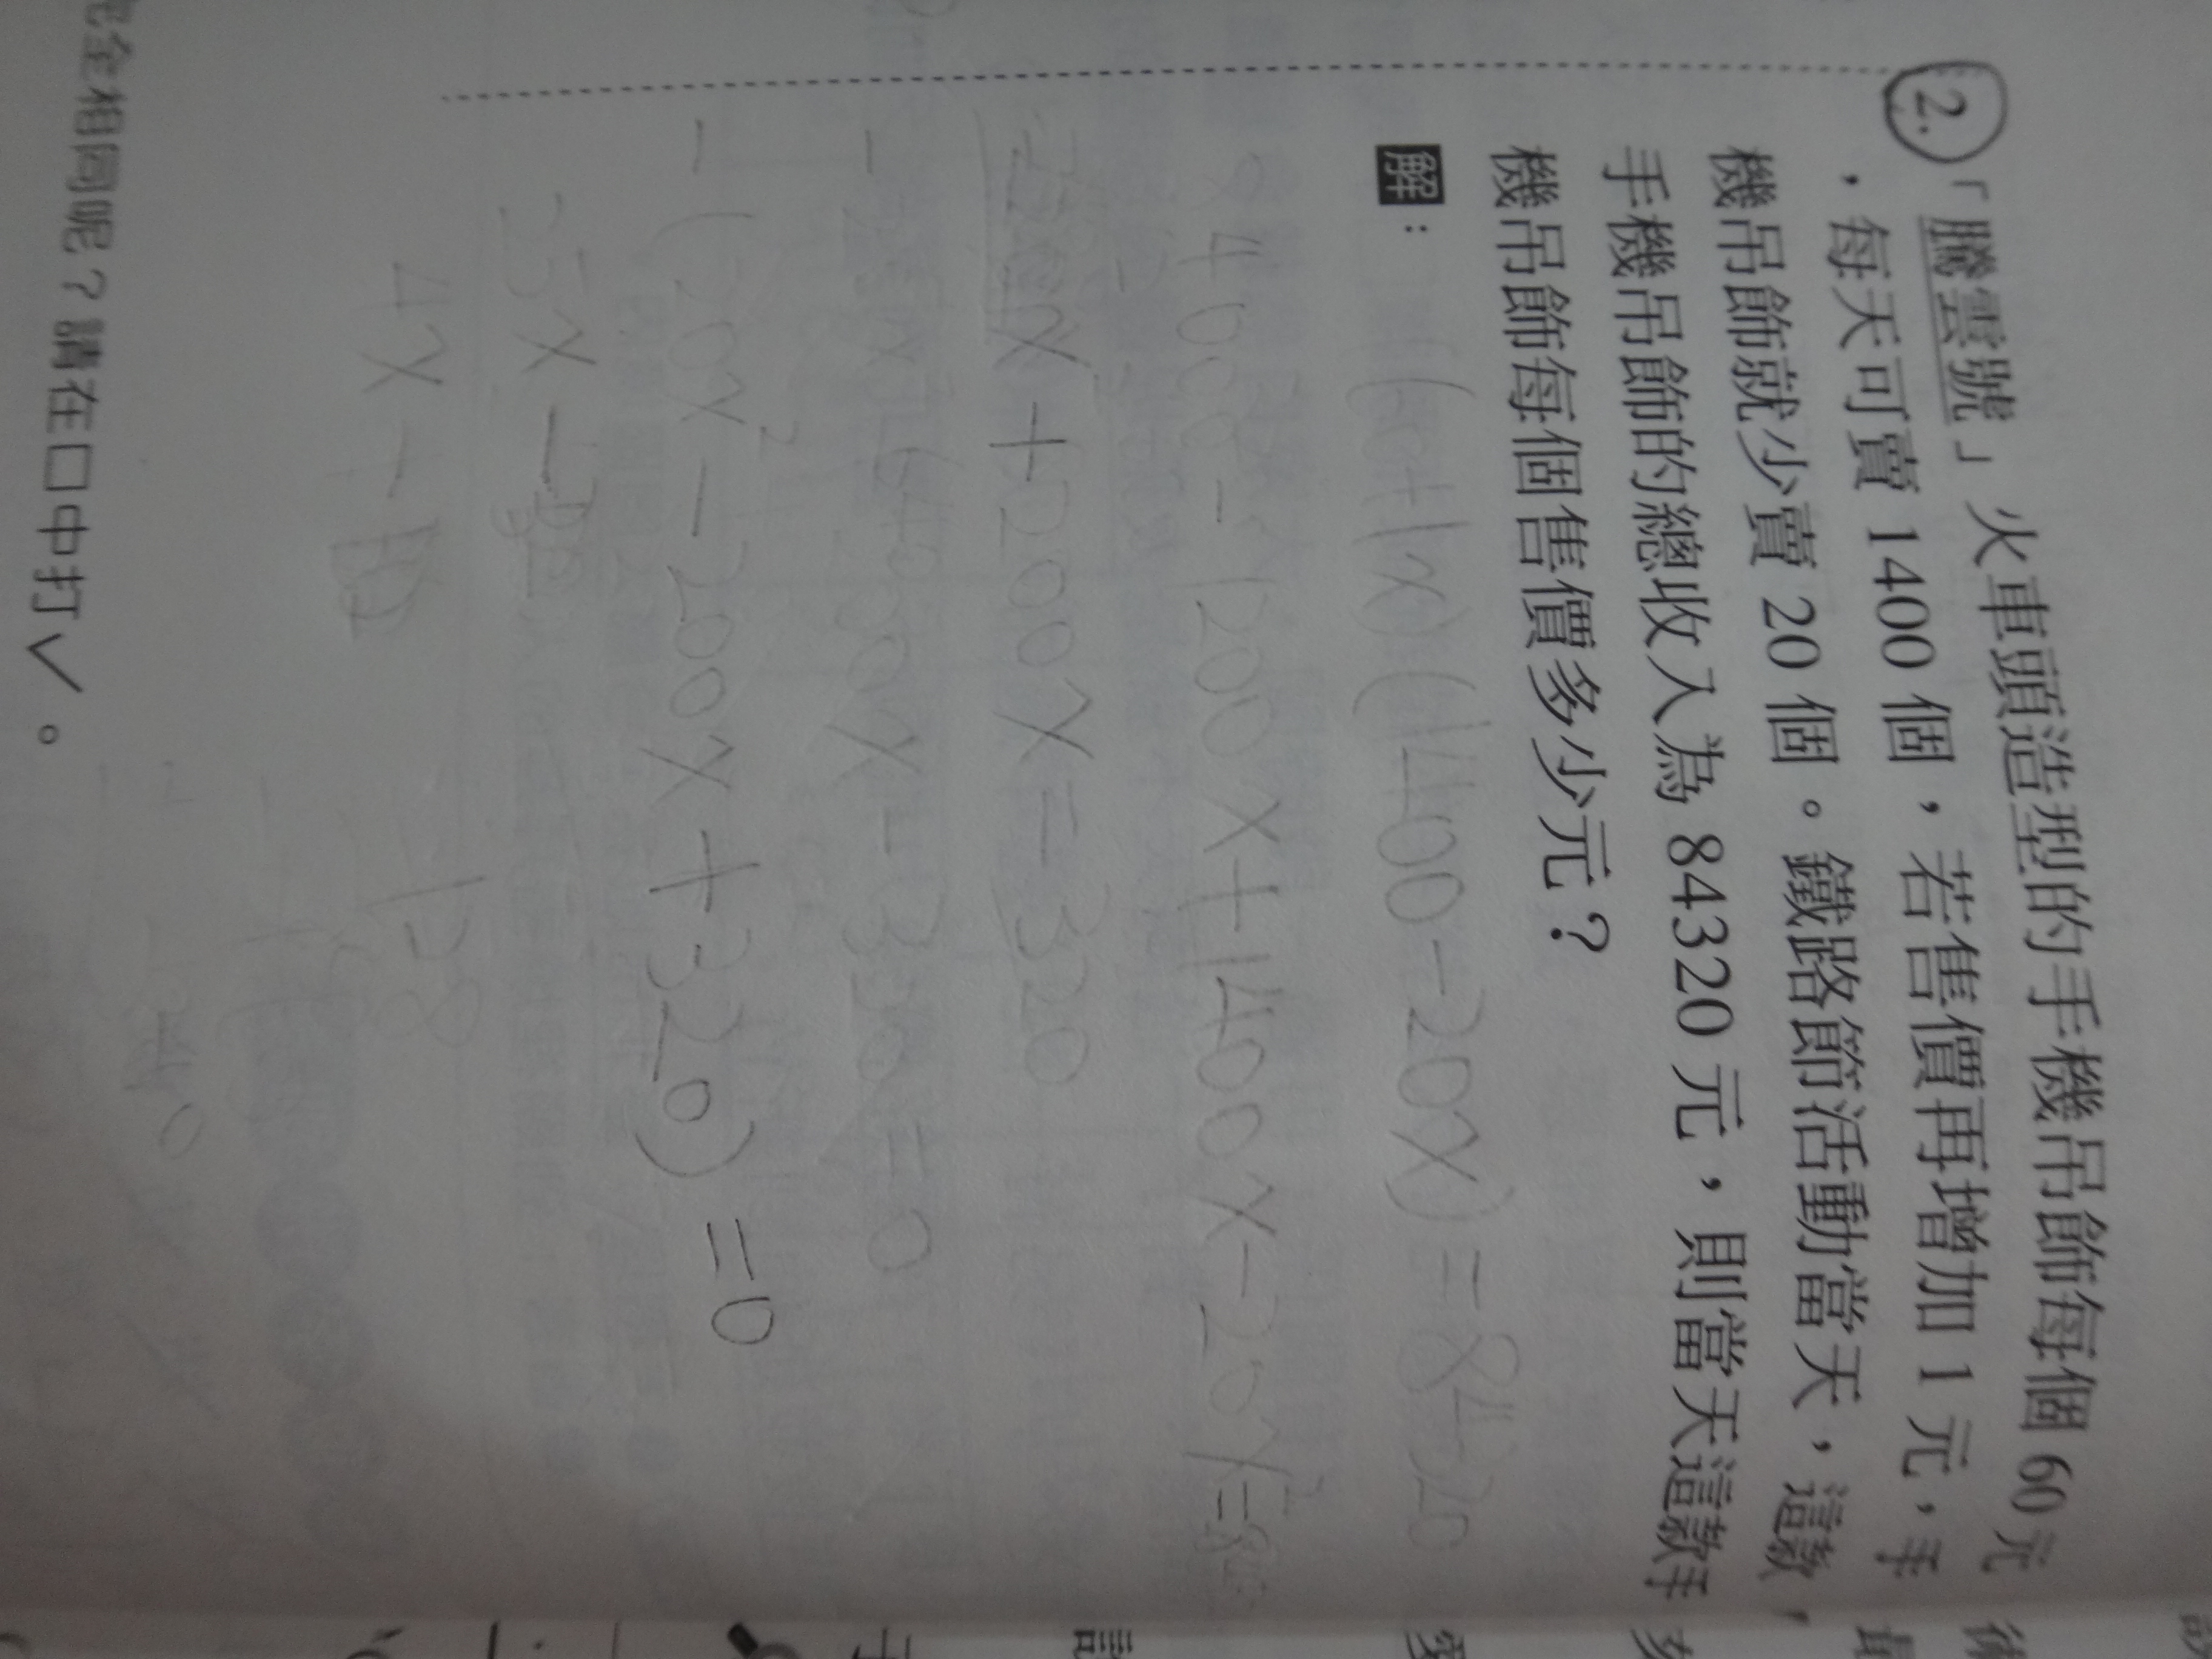 2.「騰雲號」火車頭造型的手機吊飾每個 60 元
，每天可賣 1400 個，若售價再增加 1 元，手
機吊飾就少賣 20 個。鐵路節活動當天，這款
手機吊飾的總收入為 84320 元，則當天這款手
機吊飾每個售價多少元？
解：
(60+1x)(1400-20x)=84320
84000-1200x+1400x-20x²=
+200x=320
-(20x²-200x+320)=0
5x
4x
完全相同呢？請在□中打✓。